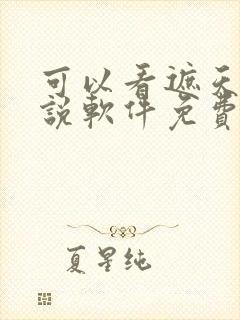 可以看遮天
說軟件免費
夏星纯